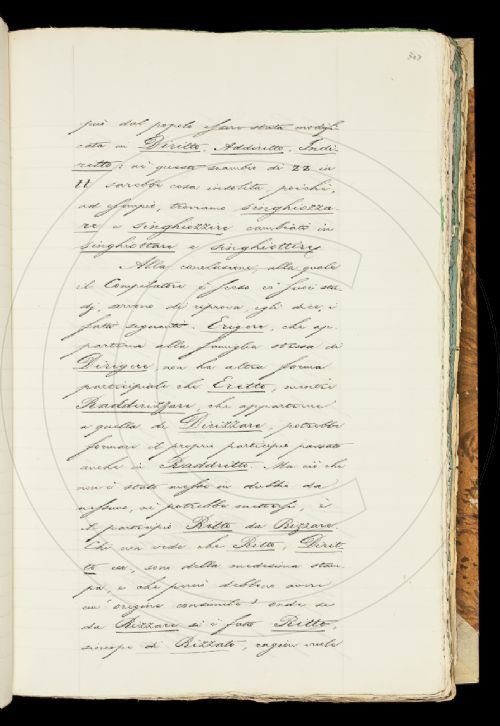 può dal popolo essere stata modifi-
cata in Diritto, Addiritto, Indi-
ritto; nè questo scambio di zz in
tt sarebbe cosa insolita, poichè,
ad esempio, troviamo Singhiozza-
re e Singhiozzire cambiati in
Singhiottare e Singhiottire.
Alla conclusione, alla quale
il Compilatore è sceso co' suoi stu-
dj, servono di riprova, egli dice, i
fatti seguenti. Erigere, che ap-
partiene alla famiglia stessa di
Dirigere, non ha altra forma
participiale che Eretto, mentre
Raddirizzare, che appartiene
a quella di Dirizzare, potrebbe
formare il proprio participio passato
anche in Raddritto. Ma ciò che
non è stato messo in dubbio da
nessuno, nè potrebbe mettersi, è
il participio Ritto da Rizzare.
Chi non vede che Ritto, Dirit-
to ec, sono della medesima stam-
pa, e che perciò debbono avere
un' origine consimile? Onde se
da Rizzare si è fatto Ritto,
sincope di Rizzato, ragion vuole